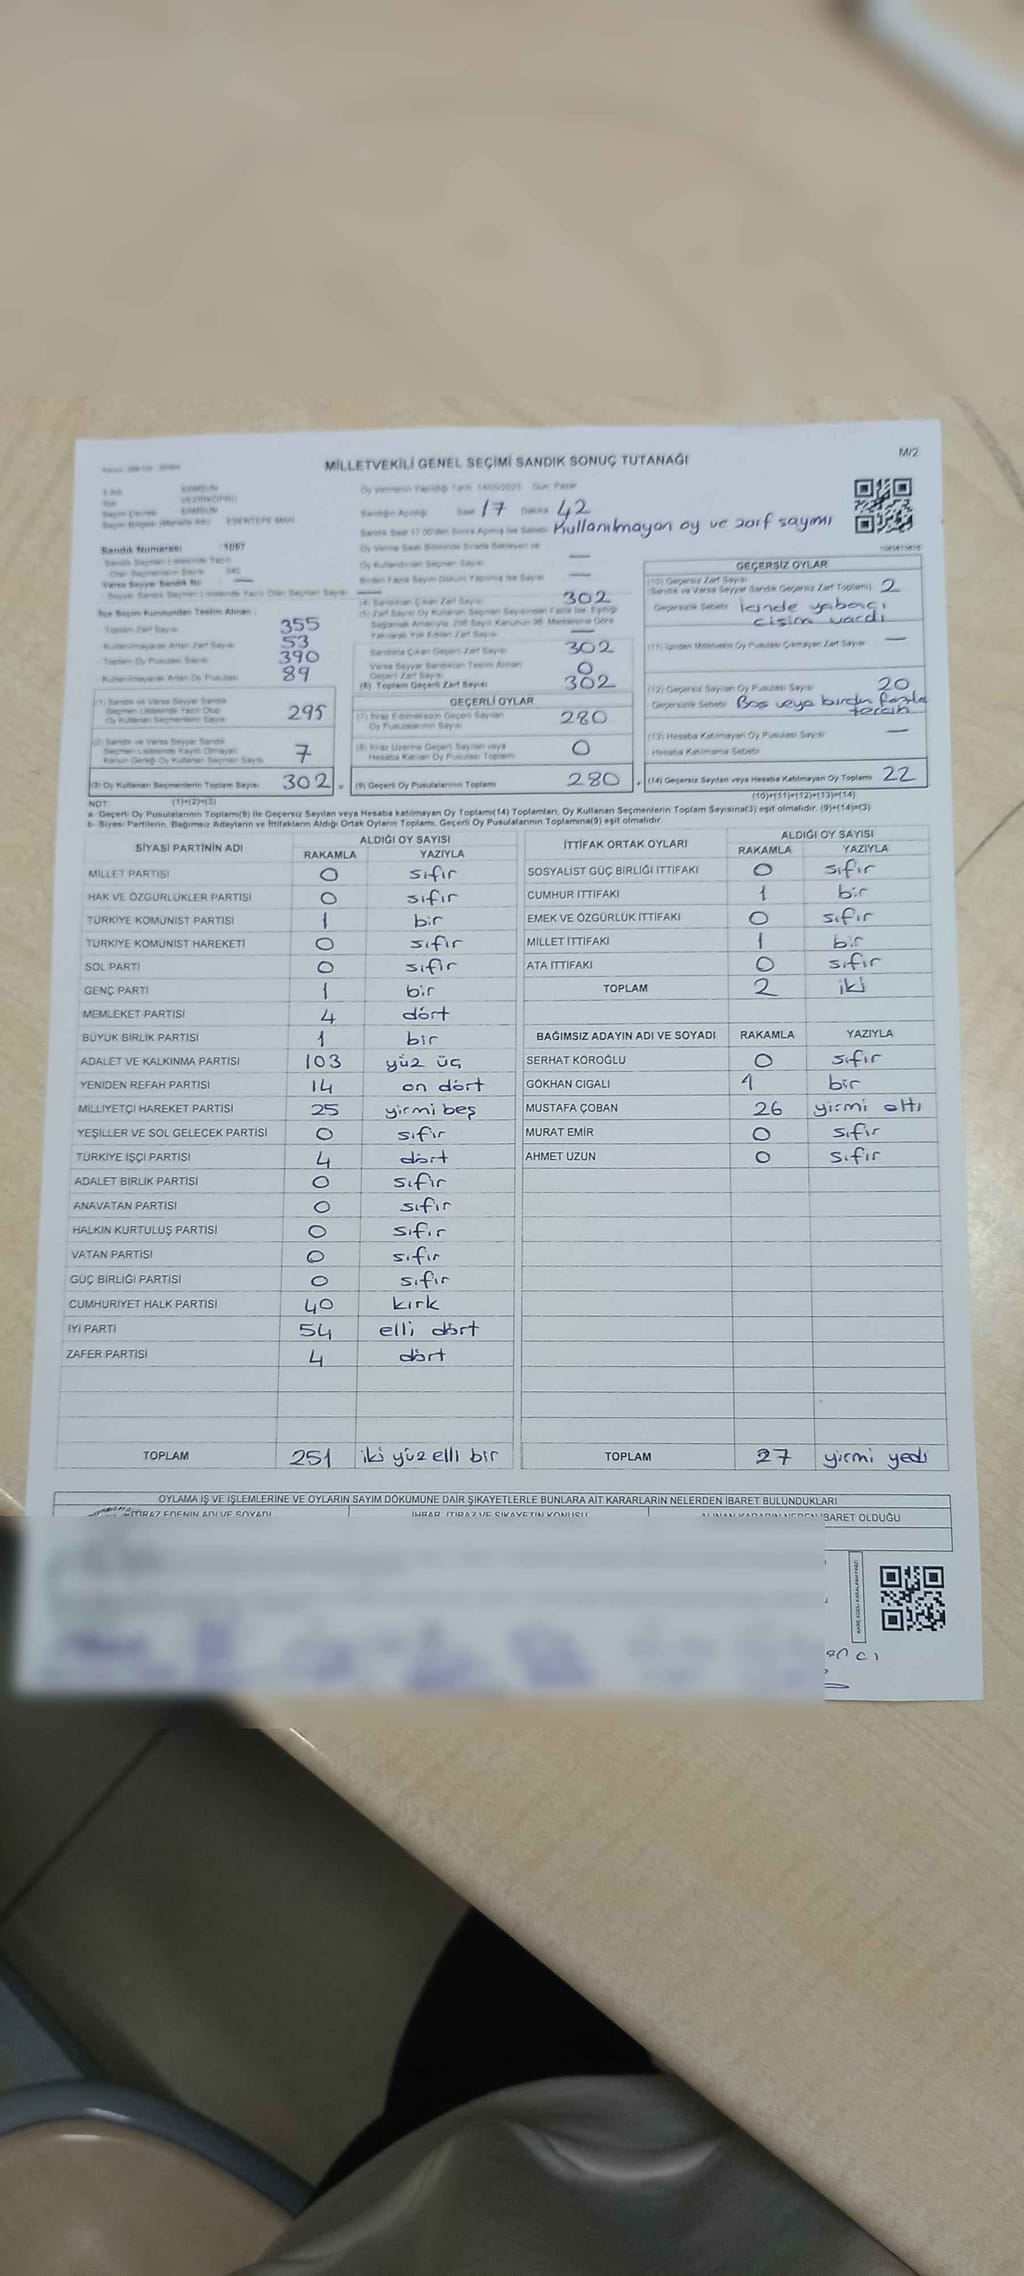 M/2
MİLLETVEKİLİ GENEL SEÇİMİ SANDIK SONUÇ TUTANAĞI
SAMSUN
VEZİRKÖPRÜ
SAMSUN
ESENTEPE MAH
Oy Vermenin Yapıldığı Tarih: 14/05/2023 Gün: Pazar
Sandığın Açıldığı Saat 17 Dakika 42
Sandık Saat 17.00'den Sonra Açılmış İse Sebebi Kullanılmayan oy ve zarf sayımı
Sandık Numarası : 1097
Oy Kullandırılan Seçmen Sayısı —
Birden Fazla Sayım Döküm Yapılmış İse Sayısı —
Varsa Seyyar Sandık No —
İlçe Seçim Kurulundan Teslim Alınan :
Toplam Zarf Sayısı 355
Kullanılmayarak Artan Zarf Sayısı 53
Toplam Oy Pusulası Sayısı 390
Kullanılmayarak Artan Oy Pusulası 89
(1) Sandık ve Varsa Seyyar Sandık
Seçmen Listesinde Yazılı Olup
Oy Kullanan Seçmenlerin Sayısı 295
(2) Sandık ve Varsa Seyyar Sandık
Seçmen Listesinde Kayıtlı Olmayan
Kanun Gereği Oy Kullanan Seçmen Sayısı 7
(3) Oy Kullanan Seçmenlerin Toplam Sayısı 302 =
(1)+(2)=(3)
(4) Sandıktan Çıkan Zarf Sayısı 302
(5) Zarf Sayısı Oy Kullanan Seçmen Sayısından Fazla İse, Eşitliği
Sağlamak Amacıyla, 298 Sayılı Kanunun 98. Maddesine Göre
Yakılarak Yok Edilen Zarf Sayısı —
Sandıkta Çıkan Geçerli Zarf Sayısı 302
Varsa Seyyar Sandıktan Teslim Alınan
Geçerli Zarf Sayısı 0
(6) Toplam Geçerli Zarf Sayısı 302
GEÇERLİ OYLAR
(7) İtiraz Edilmeksizin Geçerli Sayılan
Oy Pusulalarının Sayısı 280
(8) İtiraz Üzerine Geçerli Sayılan veya
Hesaba Katılan Oy Pusulası Toplamı 0
(9) Geçerli Oy Pusulalarının Toplamı 280 +
GEÇERSİZ OYLAR
(10) Geçersiz Zarf Sayısı
(Sandık ve Varsa Seyyar Sandık Geçersiz Zarf Toplamı) 2
Geçersizlik Sebebi İçinde yabancı
cisim vardı
(11) İçinden Milletvekili Oy Pusulası Çıkmayan Zarf Sayısı —
(12) Geçersiz Sayılan Oy Pusulası Sayısı 20
Geçersizlik Sebebi Boş veya birden fazla
tercih
(13) Hesaba Katılmayan Oy Pusulası Sayısı —
Hesaba Katılmama Sebebi
(14) Geçersiz Sayılan veya Hesaba Katılmayan Oy Toplamı 22
(10)+(11)+(12)+(13)=(14)
NOT:
a- Geçerli Oy Pusulalarının Toplamı(9) ile Geçersiz Sayılan veya Hesaba katılmayan Oy Toplamı(14) Toplamları, Oy Kullanan Seçmenlerin Toplam Sayısına(3) eşit olmalıdır. (9)+(14)=(3)
b- Siyasi Partilerin, Bağımsız Adayların ve İttifakların Aldığı Ortak Oyların Toplamı, Geçerli Oy Pusulalarının Toplamına(9) eşit olmalıdır.
SİYASİ PARTİNİN ADI ALDIĞI OY SAYISI
RAKAMLA YAZIYLA
MİLLET PARTİSİ 0 sıfır
HAK VE ÖZGÜRLÜKLER PARTİSİ 0 sıfır
TÜRKİYE KOMÜNİST PARTİSİ 1 bir
TÜRKİYE KOMÜNİST HAREKETİ 0 sıfır
SOL PARTİ 0 sıfır
GENÇ PARTİ 1 bir
MEMLEKET PARTİSİ 4 dört
BÜYÜK BİRLİK PARTİSİ 1 bir
ADALET VE KALKINMA PARTİSİ 103 yüz üç
YENİDEN REFAH PARTİSİ 14 on dört
MİLLİYETÇİ HAREKET PARTİSİ 25 yirmi beş
YEŞİLLER VE SOL GELECEK PARTİSİ 0 sıfır
TÜRKİYE İŞÇİ PARTİSİ 4 dört
ADALET BİRLİK PARTİSİ 0 sıfır
ANAVATAN PARTİSİ 0 sıfır
HALKIN KURTULUŞ PARTİSİ 0 sıfır
VATAN PARTİSİ 0 sıfır
GÜÇ BİRLİĞİ PARTİSİ 0 sıfır
CUMHURİYET HALK PARTİSİ 40 kırk
İYİ PARTİ 54 elli dört
ZAFER PARTİSİ 4 dört
TOPLAM 251 iki yüz elli bir
İTTİFAK ORTAK OYLARI ALDIĞI OY SAYISI
RAKAMLA YAZIYLA
SOSYALİST GÜÇ BİRLİĞİ İTTİFAKI 0 sıfır
CUMHUR İTTİFAKI 1 bir
EMEK VE ÖZGÜRLÜK İTTİFAKI 0 sıfır
MİLLET İTTİFAKI 1 bir
ATA İTTİFAKI 0 sıfır
TOPLAM 2 iki
BAĞIMSIZ ADAYIN ADI VE SOYADI RAKAMLA YAZIYLA
SERHAT KÖROĞLU 0 sıfır
GÖKHAN CIGALI 1 bir
MUSTAFA ÇOBAN 26 yirmi altı
MURAT EMİR 0 sıfır
AHMET UZUN 0 sıfır
TOPLAM 27 yirmi yedi
OYLAMA İŞ VE İŞLEMLERİNE VE OYLARIN SAYIM DÖKÜMÜNE DAİR ŞİKAYETLERLE BUNLARA AİT KARARLARIN NELERDEN İBARET BULUNDUKLARI
İTİRAZ EDENİN ADI VE SOYADI İHBAR, İTİRAZ VE ŞİKAYETİN KONUSU ALINAN KARARIN NEDEN İBARET OLDUĞU